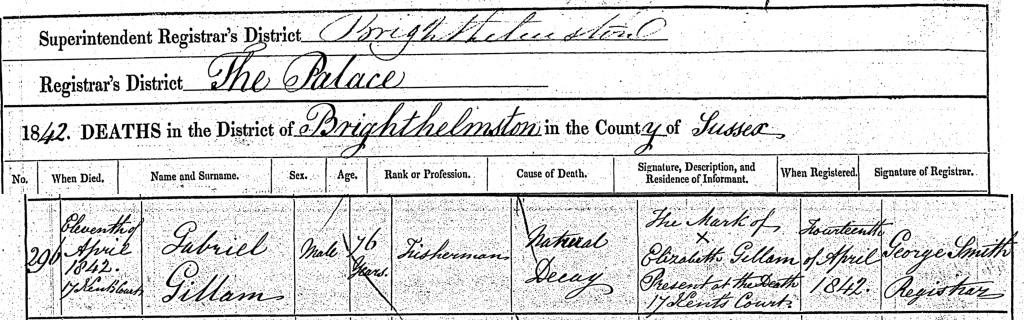 Superintendent Registrar's District Brighthelmston
Registrar's District The Palace
1842. DEATHS in the District of Brighthelmston in the County of Sussex
No. When Died. Name and Surname. Sex. Age. Rank or Profession. Cause of Death. Signature, Description, and Residence of Informant. When Registered. Signature of Registrar.
296
Eleventh of
April
1842.
17 Kents Court
Gabriel
Gillam
Male
76
Years.
Fisherman
Natural
Decay
The Mark of
X
Elizabeth Gillam
Present at the Death
17 Kents Court
Fourteenth
of April
1842.
George Smith
Registrar